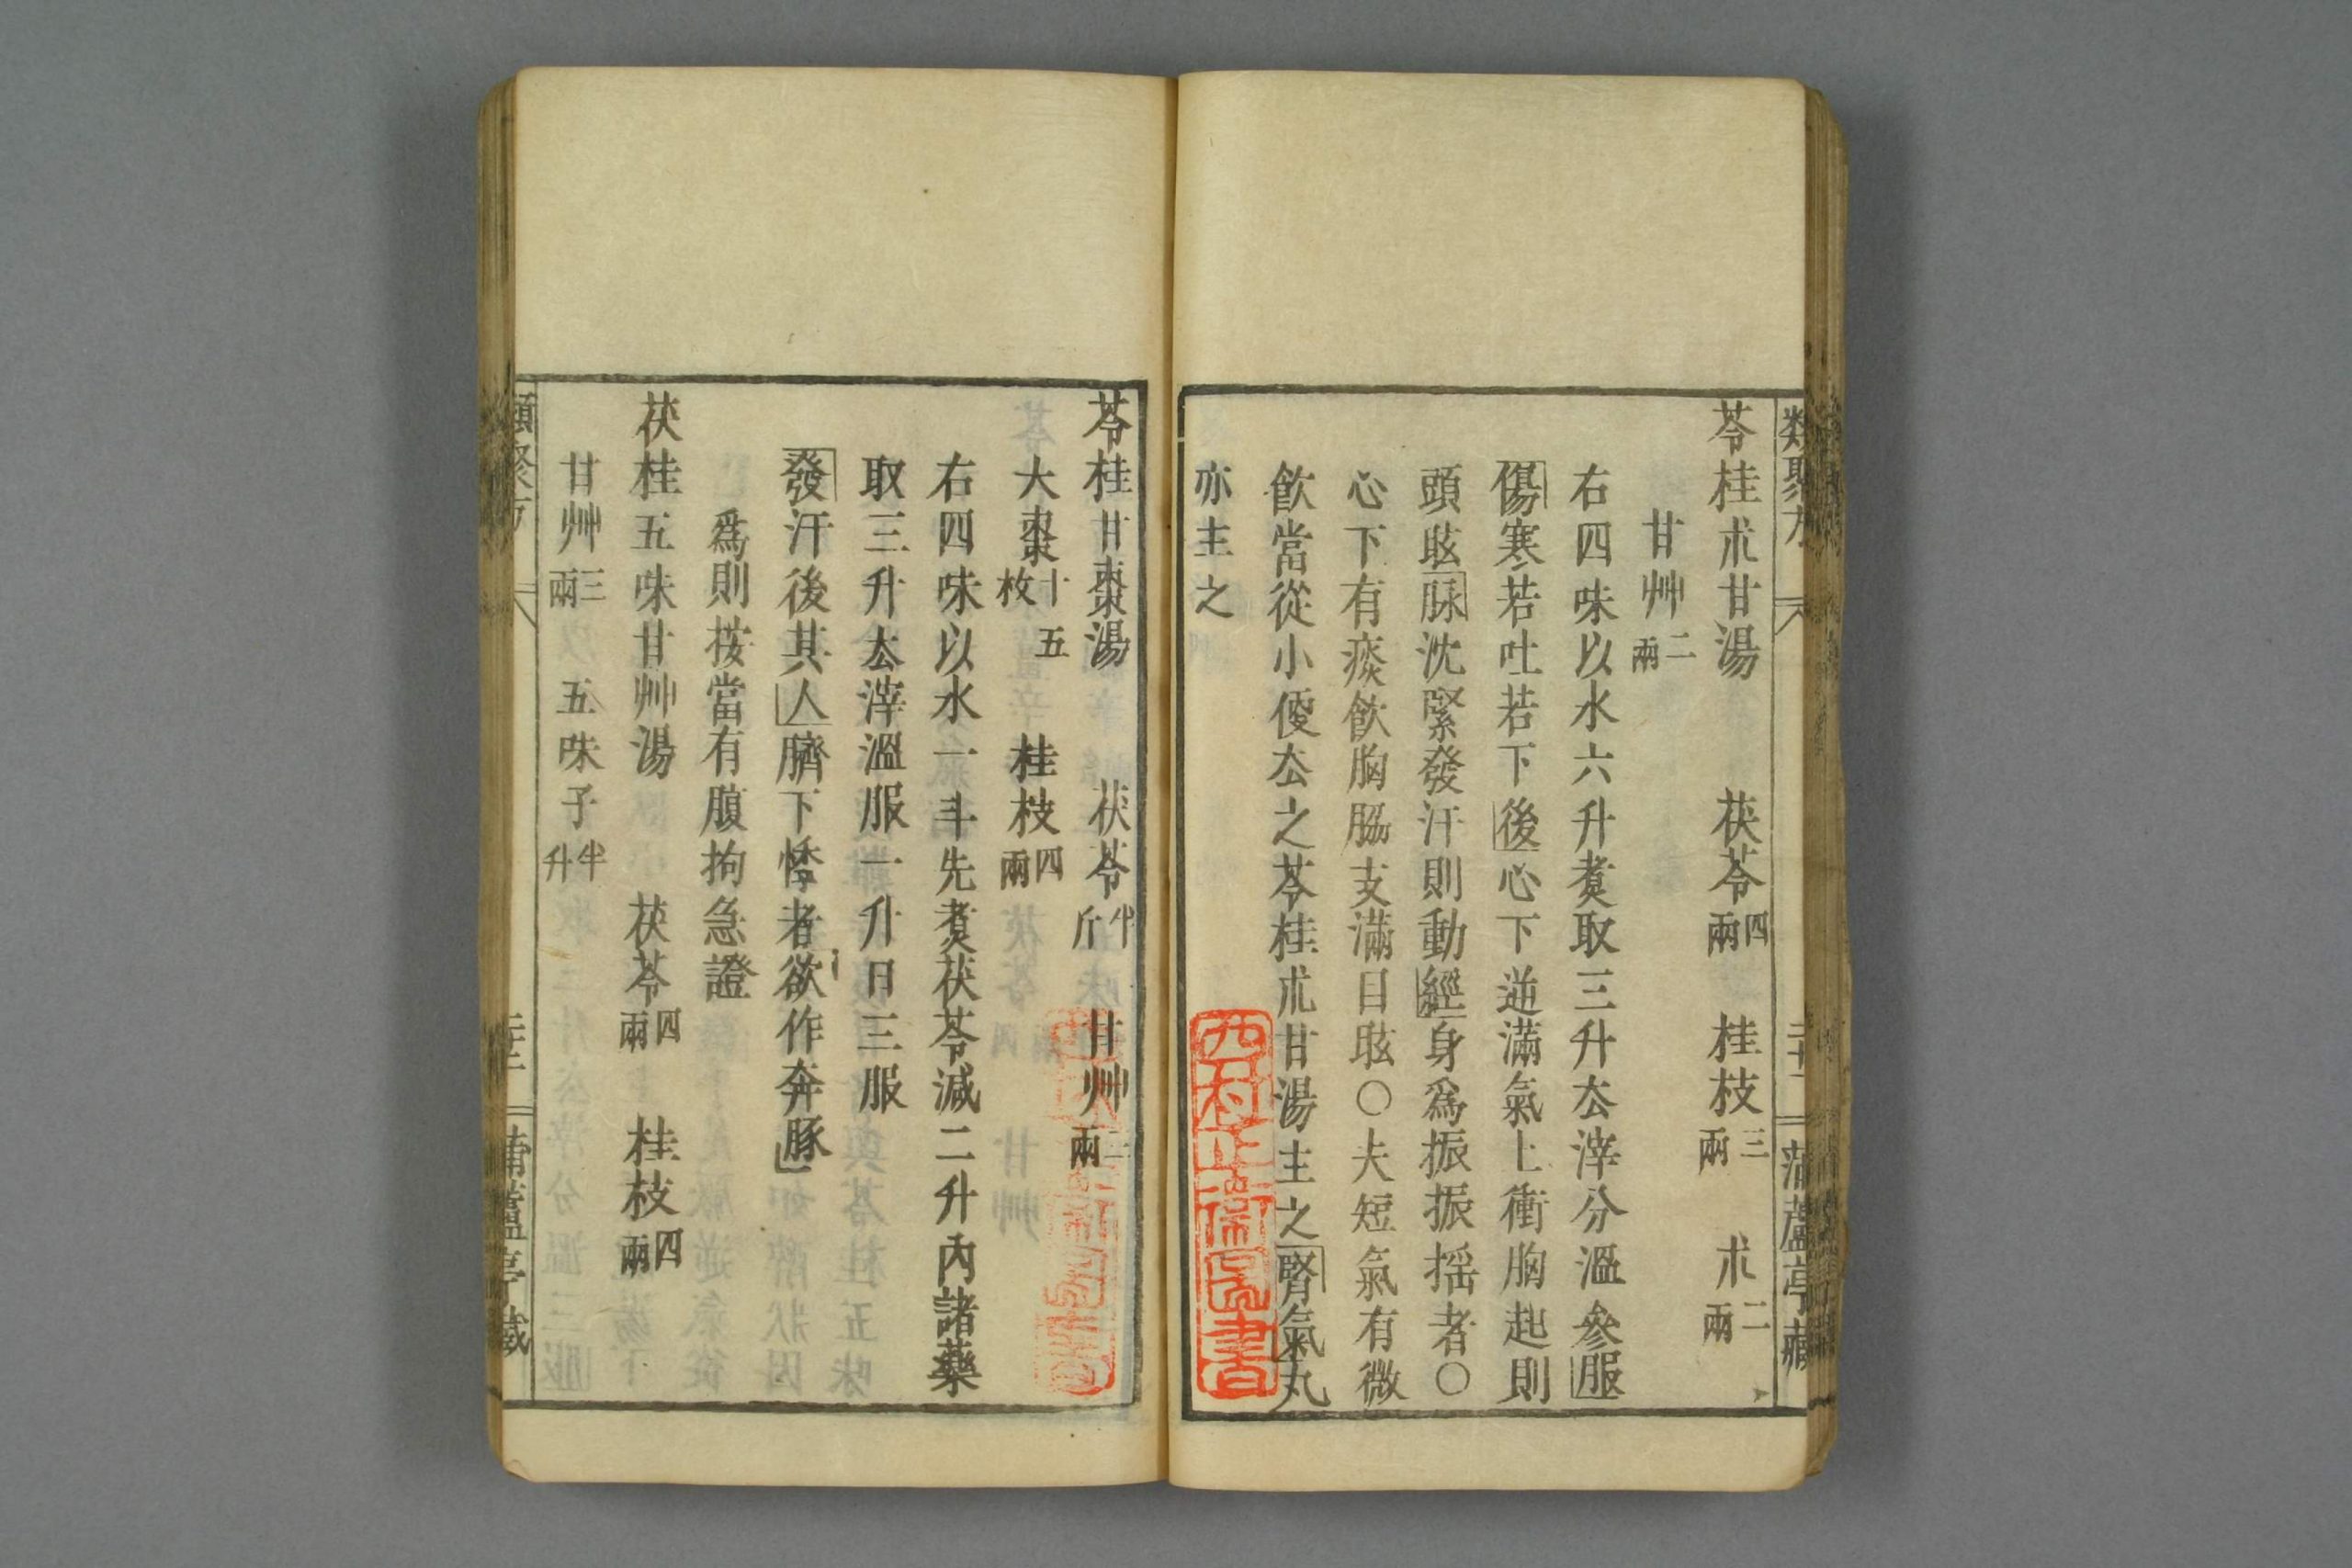 類聚方 三十一 蒲蘆亭藏
苓桂朮甘湯 茯苓四兩 桂枝三兩 朮二兩
甘艸二兩
右四味以水六升煑取三升厺滓分溫叅服
傷寒若吐若下後心下逆滿氣上衝胸起則
頭眩脉沈緊發汗則動經身爲振振搖者○
心下有痰飲胸脇支滿目眩○夫短氣有微
飲當從小便厺之苓桂朮甘湯主之腎氣丸
亦主之
西村正衞圖書
苓桂甘棗湯 茯苓半斤 甘艸二兩
大棗十五枚 桂枝四兩
右四味以水一斗先煑茯苓減二升內諸藥
取三升厺滓溫服一升日三服
發汗後其人臍下悸者欲作奔豚
爲則按當有腹拘急證
茯桂五味甘艸湯 茯苓四兩 桂枝四兩
甘艸三兩 五味子半升
類聚方 蒲蘆亭藏